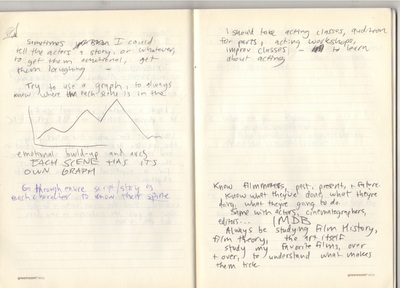 Sometimes I could
tell the actors a story, or whatever,
to get them emotional, get
them laughing –
Try to use a graph, to always
know where each scene is in the
emotional build-up and arc,
EACH SCENE HAS ITS
OWN GRAPH
Go through entire script/story
each character to know their spine
I should take acting classes, audition
for parts, acting workshops,
improv classes, – to learn
about acting
Know filmmakers, past, present, + future
Know what they've done, what they're
doing, what they're going to do.
Same with actors, cinematographers,
editors... IMDB
Always be studying Film History,
film theory, the art itself
study my favorite films, over
+ over, to understand what makes
them tick.